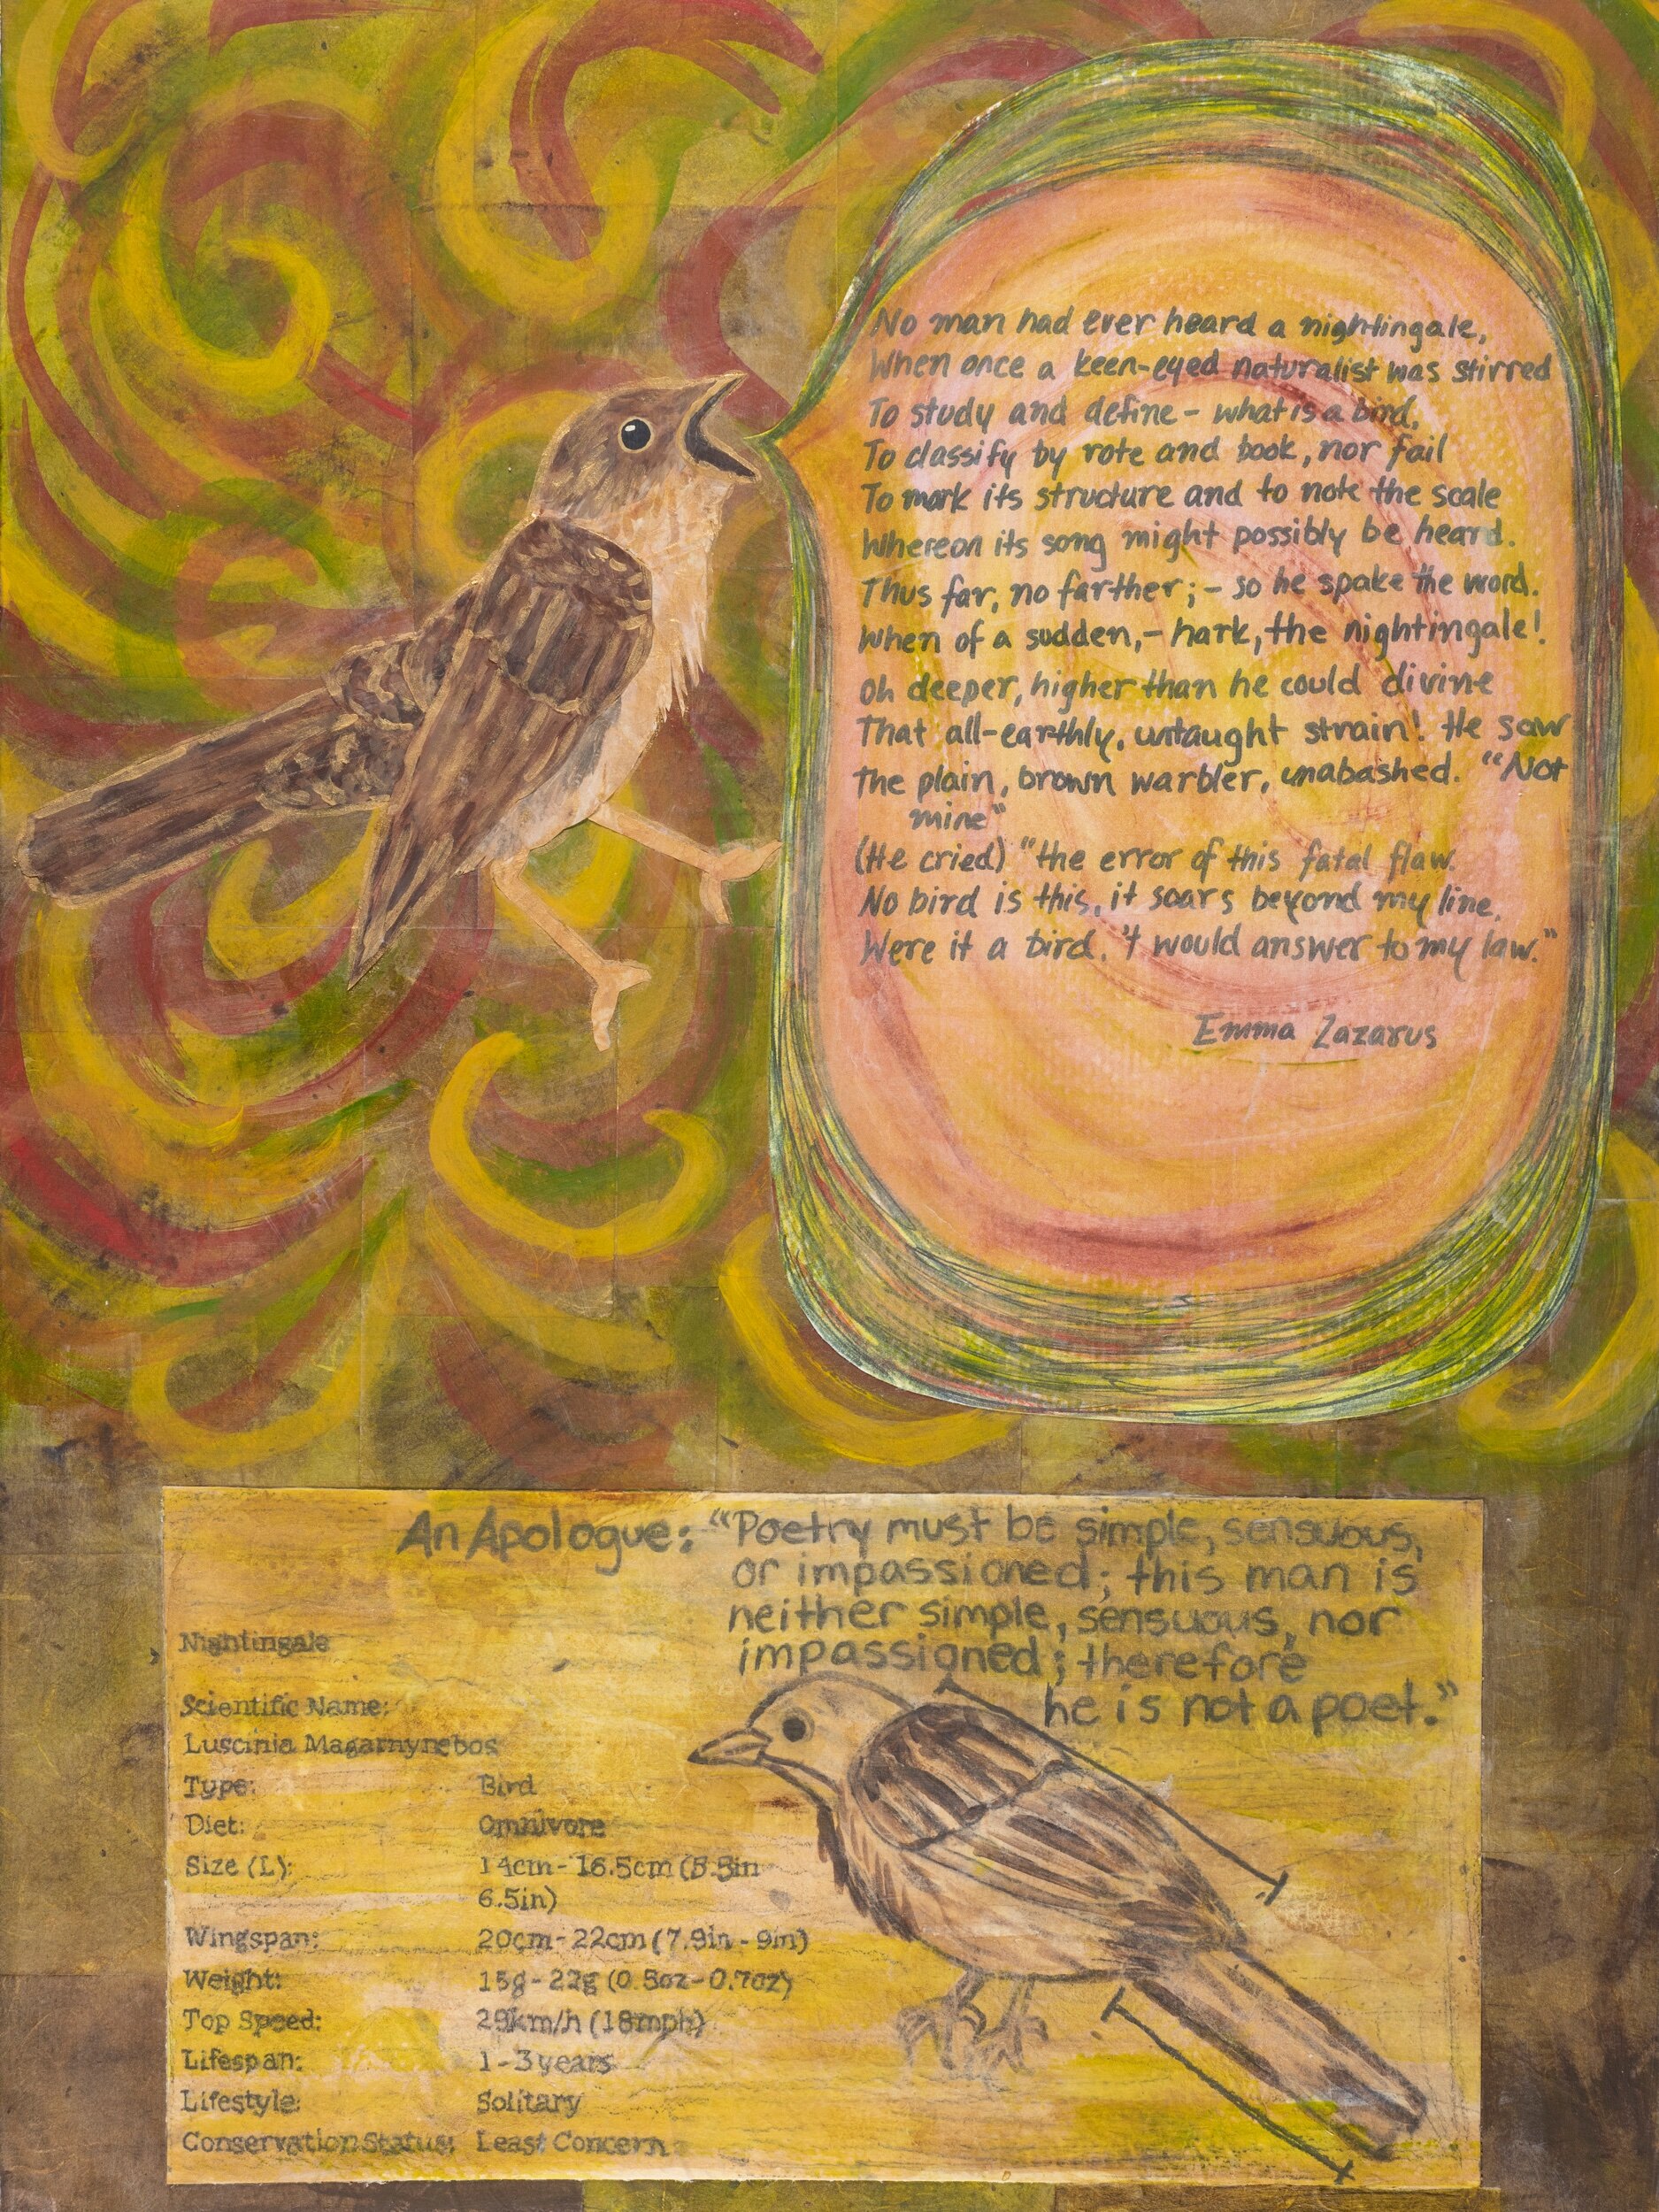 No man had ever heard a nightingale,
When once a keen-eyed naturalist was stirred
To study and define - what is a bird,
To classify by rote and book, nor fail
To mark its structure and to note the scale
Whereon its song might possibly be heard.
Thus far, no farther; - so he spake the word.
When of a sudden, - hark, the nightingale!
Oh deeper, higher than he could divine
That all-earthly, untaught strain! He saw
the plain, brown warbler, unabashed. "Not
mine"
(He cried) "the error of this fatal flaw.
No bird is this, it soars beyond my line,
Were it a bird, 't would answer to my law."
Emma Lazarus
An Apologue: "Poetry must be simple, sensuous,
or impassioned; this man is
neither simple, sensuous, nor
impassioned; therefore
he is not a poet."
Nightingale
Scientific Name:
Luscinia Magarnyrebos
Type: Bird
Diet: Omnivore
Size (L): 14cm - 16.5cm (5.5in
6.5in)
Wingspan: 20cm - 22cm (7.9in - 9in)
Weight: 15g - 22g (0.5oz - 0.7oz)
Top Speed: 29km/h (18mph)
Lifespan: 1 - 3 years
Lifestyle: Solitary
Conservation Status: Least Concern